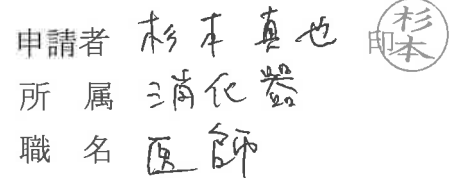 申請者 杉本真也 印 杉本
所属 消化器
職名 医師